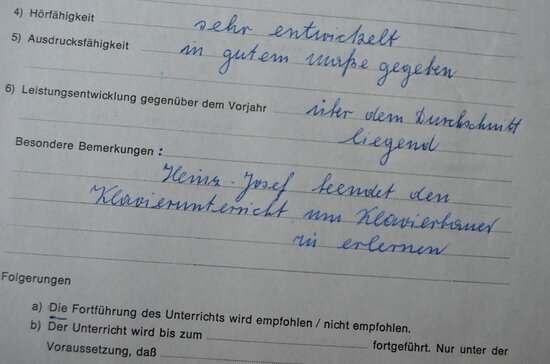 4) Hörfähigkeit sehr entwickelt
5) Ausdrucksfähigkeit in gutem Maße gegeben
6) Leistungsentwicklung gegenüber dem Vorjahr über dem Durchschnitt
liegend
Besondere Bemerkungen :
Heinz-Josef beendet den
Klavierunterricht um Klavierbauer
zu erlernen
Folgerungen
a) Die Fortführung des Unterrichts wird empfohlen / nicht empfohlen.
b) Der Unterricht wird bis zum fortgeführt. Nur unter der
Voraussetzung, daß